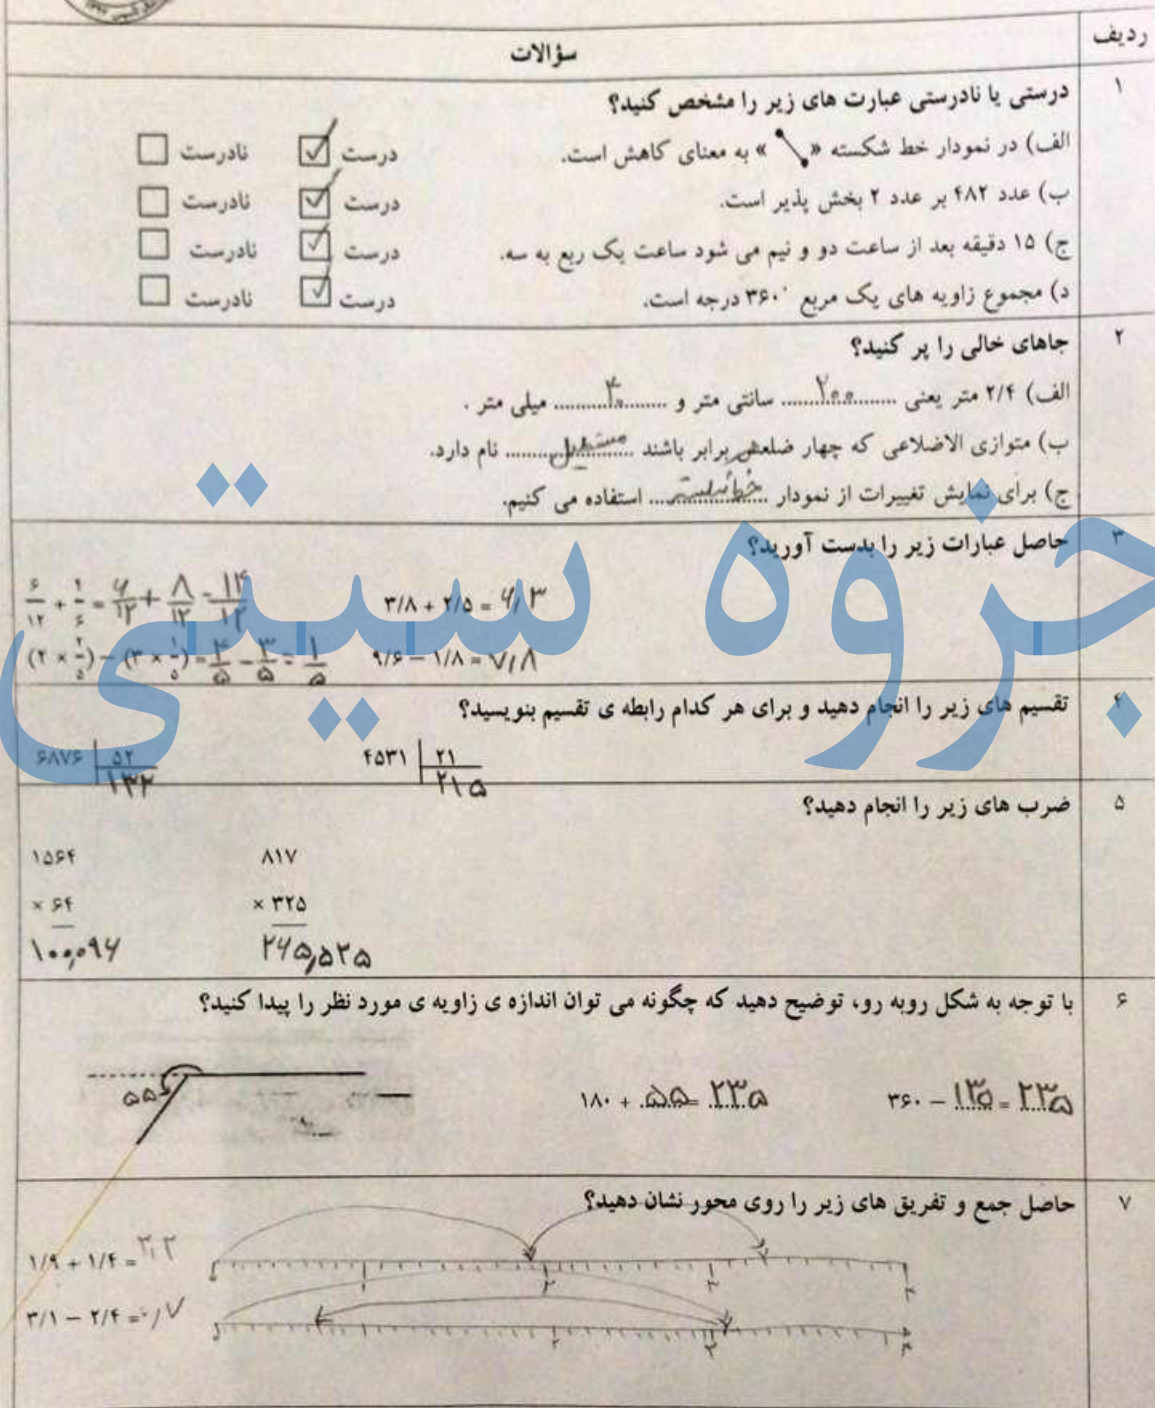 ردیف
سؤالات
۱
درستی یا نادرستی عبارت های زیر را مشخص کنید؟
الف) در نمودار خط شکسته « » به معنای کاهش است. درست ✓ نادرست
ب) عدد ۴۸۲ بر عدد ۲ بخش پذیر است. درست ✓ نادرست
ج) ۱۵ دقیقه بعد از ساعت دو و نیم می شود ساعت یک ربع به سه. درست ✓ نادرست
د) مجموع زاویه های یک مربع ۳۶۰° درجه است. درست ✓ نادرست
۲
جاهای خالی را پر کنید؟
الف) ۲/۴ متر یعنی ........۲۰۰........ سانتی متر و ........۴۰........ میلی متر .
ب) متوازی الاضلاعی که چهار ضلعش برابر باشند ........مستطیل........ نام دارد.
ج) برای نمایش تغییرات از نمودار ........خط شکسته........ استفاده می کنیم.
۳
حاصل عبارات زیر را بدست آورید؟
۳/۸ + ۲/۵ = ۶/۳
۶/۱۲ + ۴/۶ = ۶/۱۲ + ۸/۱۲ = ۱۴/۱۲
۹/۶ − ۱/۸ = ۷/۸
(۲ × ۲/۵) − (۳ × ۱/۵) = ۴/۵ − ۳/۵ = ۱/۵
جزوه سیتی
۴
تقسیم های زیر را انجام دهید و برای هر کدام رابطه ی تقسیم بنویسید؟
۶۸۷۶ ۵۲ ۴۵۳۱ ۲۱
۱۳۲ ۲۱۵
۵
ضرب های زیر را انجام دهید؟
۱۵۶۴ ۸۱۷
× ۶۴ × ۳۲۵
۱۰۰,۰۹۶ ۲۶۵,۵۲۵
۶
با توجه به شکل روبه رو، توضیح دهید که چگونه می توان اندازه ی زاویه ی مورد نظر را پیدا کنید؟
۵۵
۱۸۰ + ۵۵ = ۲۳۵
۳۶۰ − ۱۲۵ = ۲۳۵
۷
حاصل جمع و تفریق های زیر را روی محور نشان دهید؟
۱/۹ + ۱/۴ = ۳/۳
۰ ۱ ۲ ۳ ۴
۳/۱ − ۲/۴ = ۰/۷
۰ ۱ ۲ ۳ ۴